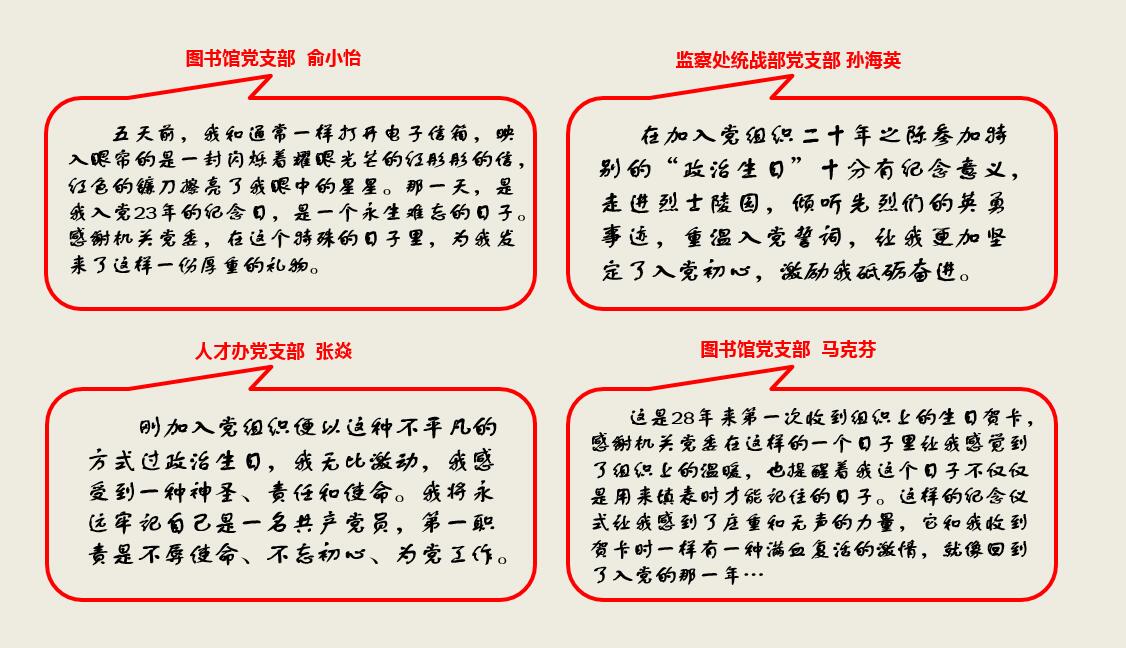 图书馆党支部 俞小怡
五天前，我和通常一样打开电子信箱，映
入眼帘的是一封闪烁着耀眼光芒的红彤彤的信，
红色的镰刀擦亮了我眼中的星星。那一天，是
我入党23年的纪念日，是一个永生难忘的日子。
感谢机关党委，在这个特殊的日子里，为我发
来了这样一份厚重的礼物。
监察处统战部党支部 孙海英
在加入党组织二十年之际参加特
别的“政治生日”十分有纪念意义，
走进烈士陵园，倾听先烈们的英勇
事迹，重温入党誓词，让我更加坚
定了入党初心，激励我砥砺奋进。
人才办党支部 张焱
刚加入党组织便以这种不平凡的
方式过政治生日，我无比激动，我感
受到一种神圣、责任和使命。我将永
远牢记自己是一名共产党员，第一职
责是不辱使命、不忘初心、为党工作。
图书馆党支部 马克芬
这是28年来第一次收到组织上的生日贺卡，
感谢机关党委在这样的一个日子里让我感觉到
了组织上的温暖，也提醒着我这个日子不仅仅
是用来填表时才能记住的日子。这样的纪念仪
式让我感到了庄重和无声的力量，它和我收到
贺卡时一样有一种满血复活的激情，就像回到
了入党的那一年…